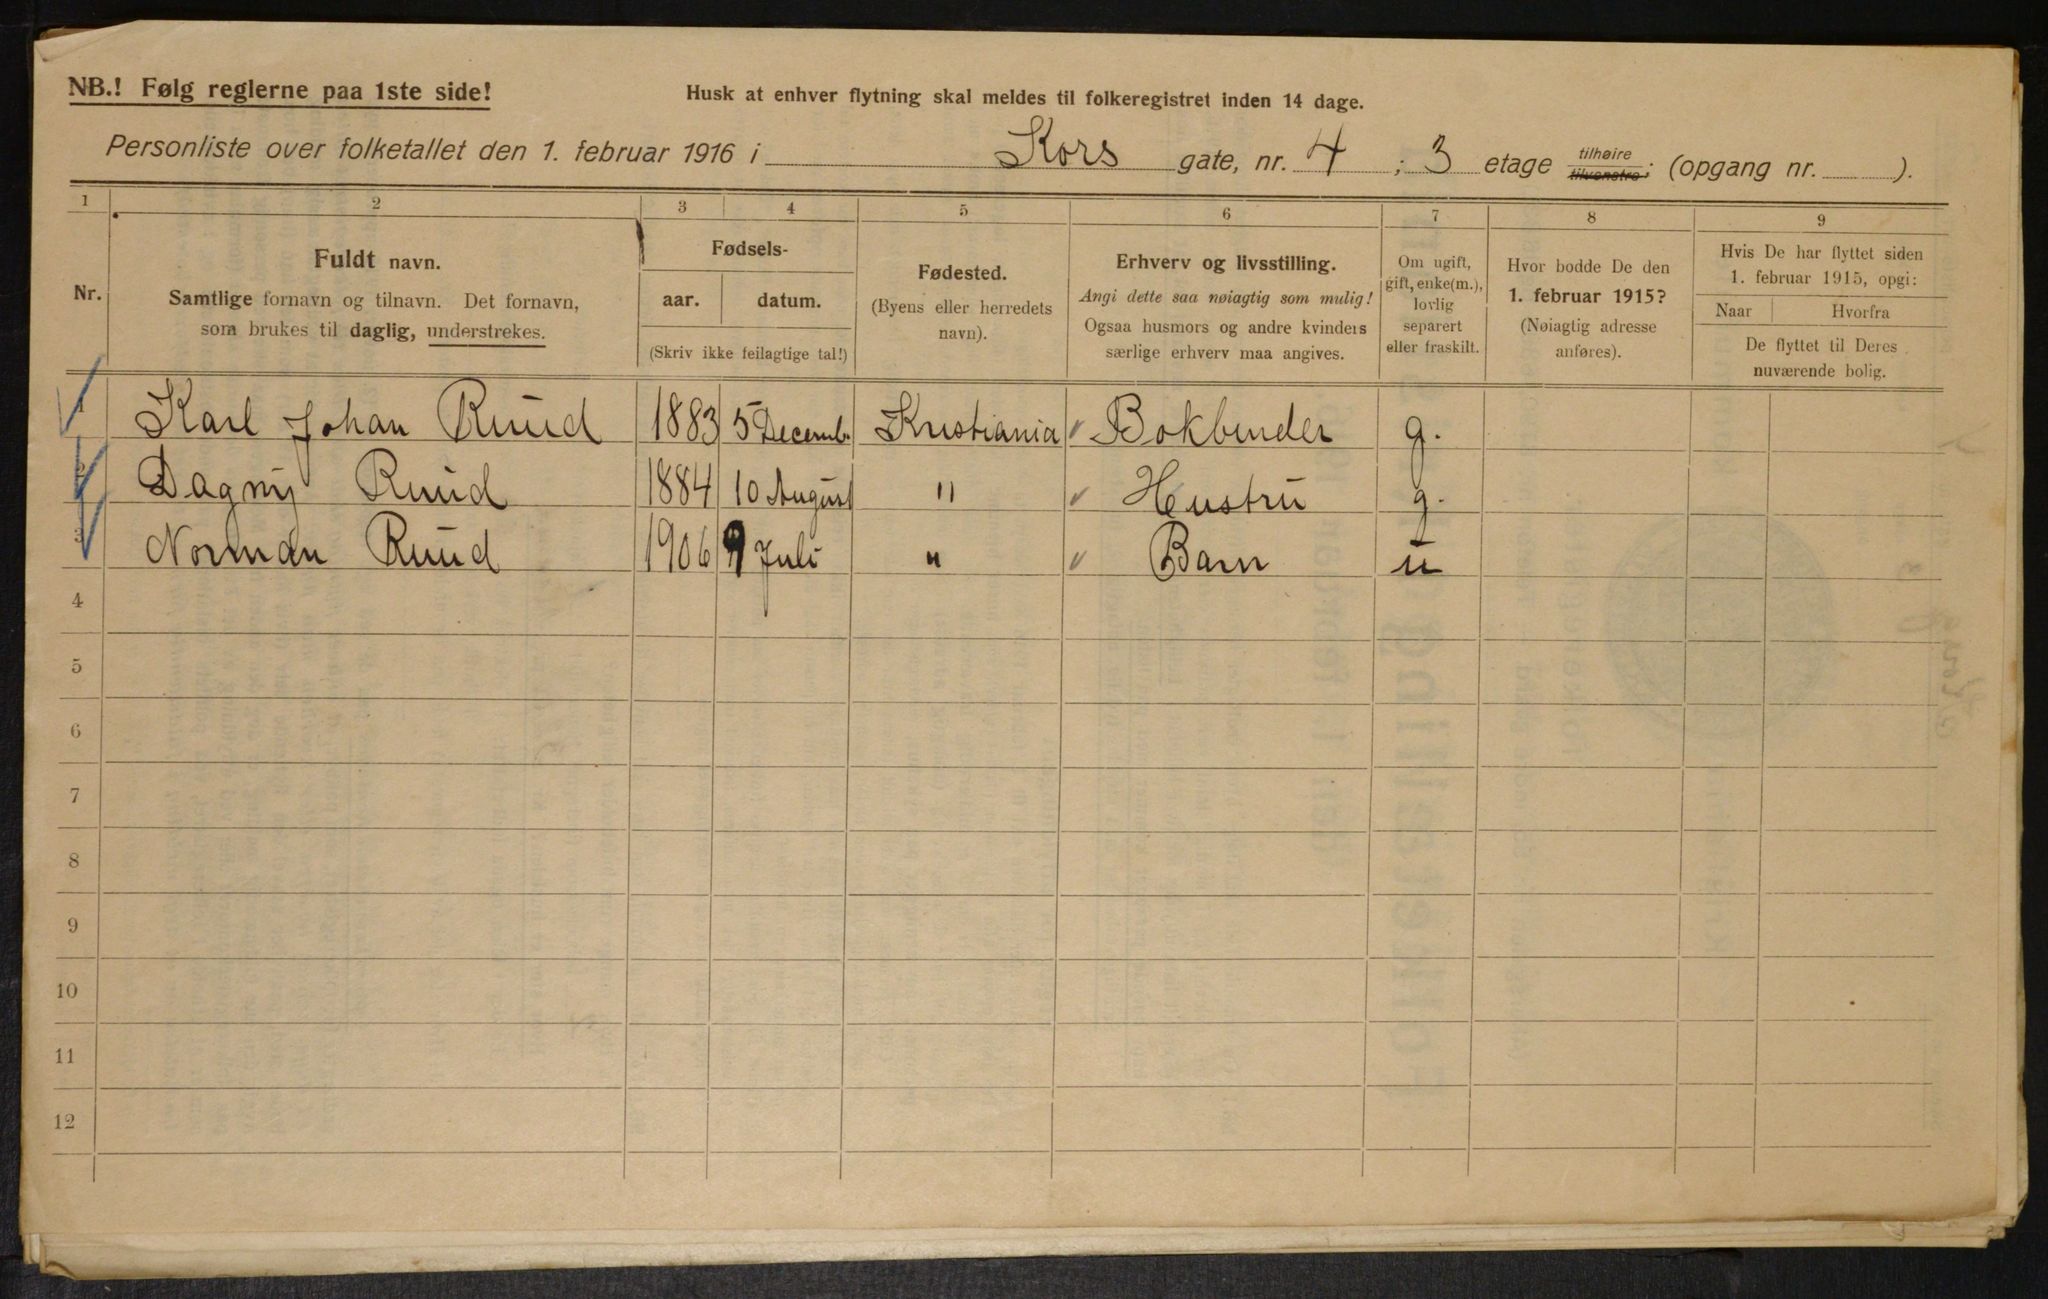 NB.! Følg reglerne paa 1ste side!
Husk at enhver flytning skal meldes til folkeregistret inden 14 dage.
Personliste over folketallet den 1. februar 1916 i Kors gate, nr. 4 ; 3 etage tilhøire tilvenstre; (opgang nr. ).
1 2 3 4 5 6 7 8 9
Nr.
Fuldt navn.
Samtlige fornavn og tilnavn. Det fornavn,
som brukes til daglig, understrekes.
Fødsels-
aar. datum.
(Skriv ikke feilagtige tal!)
Fødested.
(Byens eller herredets
navn).
Erhverv og livsstilling.
Angi dette saa nøiagtig som mulig!
Ogsaa husmors og andre kvinders
særlige erhverv maa angives.
Om ugift,
gift, enke(m.),
lovlig
separert
eller fraskilt.
Hvor bodde De den
1. februar 1915?
(Nøiagtig adresse
anføres).
Hvis De har flyttet siden
1. februar 1915, opgi:
Naar Hvorfra
De flyttet til Deres
nuværende bolig.
1 Karl Johan Ruud 1883 5 Decemb. Kristiania Bokbinder g.
2 Dagny Ruud 1884 10 August " Hustru g.
3 Norman Ruud 1906 9 Juli " Barn u
4
5
6
7
8
9
10
11
12